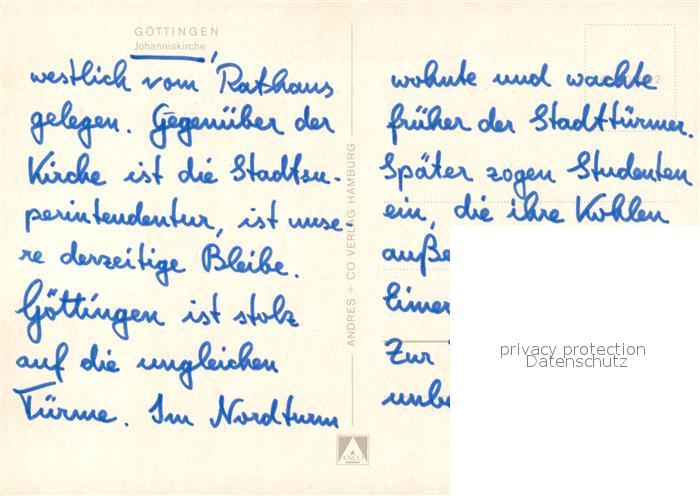 GÖTTINGEN
Johanniskirche,
westlich vom Rathaus
gelegen. Gegenüber der
Kirche ist die Stadtsu-
perintendentur, ist unse-
re derzeitige Bleibe.
Göttingen ist stolz
auf die ungleichen
Türme. Im Nordturm
ANDRES + CO VERLAG HAMBURG
ANCO
wohnte und wachte
früher der Stadttürmer.
Später zogen Studenten
ein, die ihre Kohlen
Eimer
Zur
privacy protection
Datenschutz